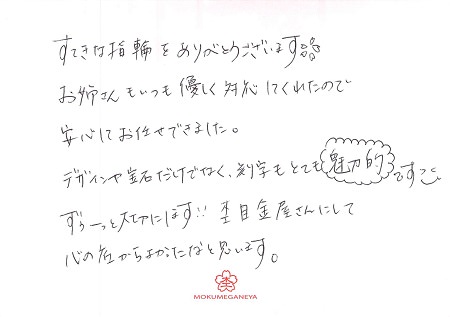 すてきな指輪をありがとうございます
お姉さんもいつも優しく対応してくれたので
安心してお任せできました。
デザインや宝石だけでなく、刻字もとても魅力的です
ずぅーっと大切にします!! 杢目金屋さんにして
心の底からよかったなと思います。
MOKUMEGANEYA